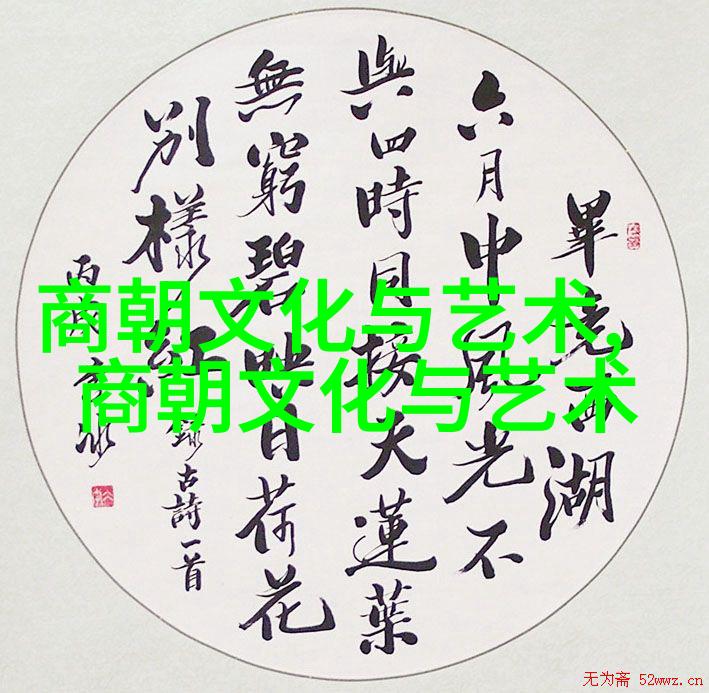 畢竟西湖
六月中風光不
與四時同接天蓮葉
無窮碧映日荷花
別樣紅 錄古詩一首
丙戌
商朝文化与艺术,
商朝文化与艺术
无为斋 52wwz.cn